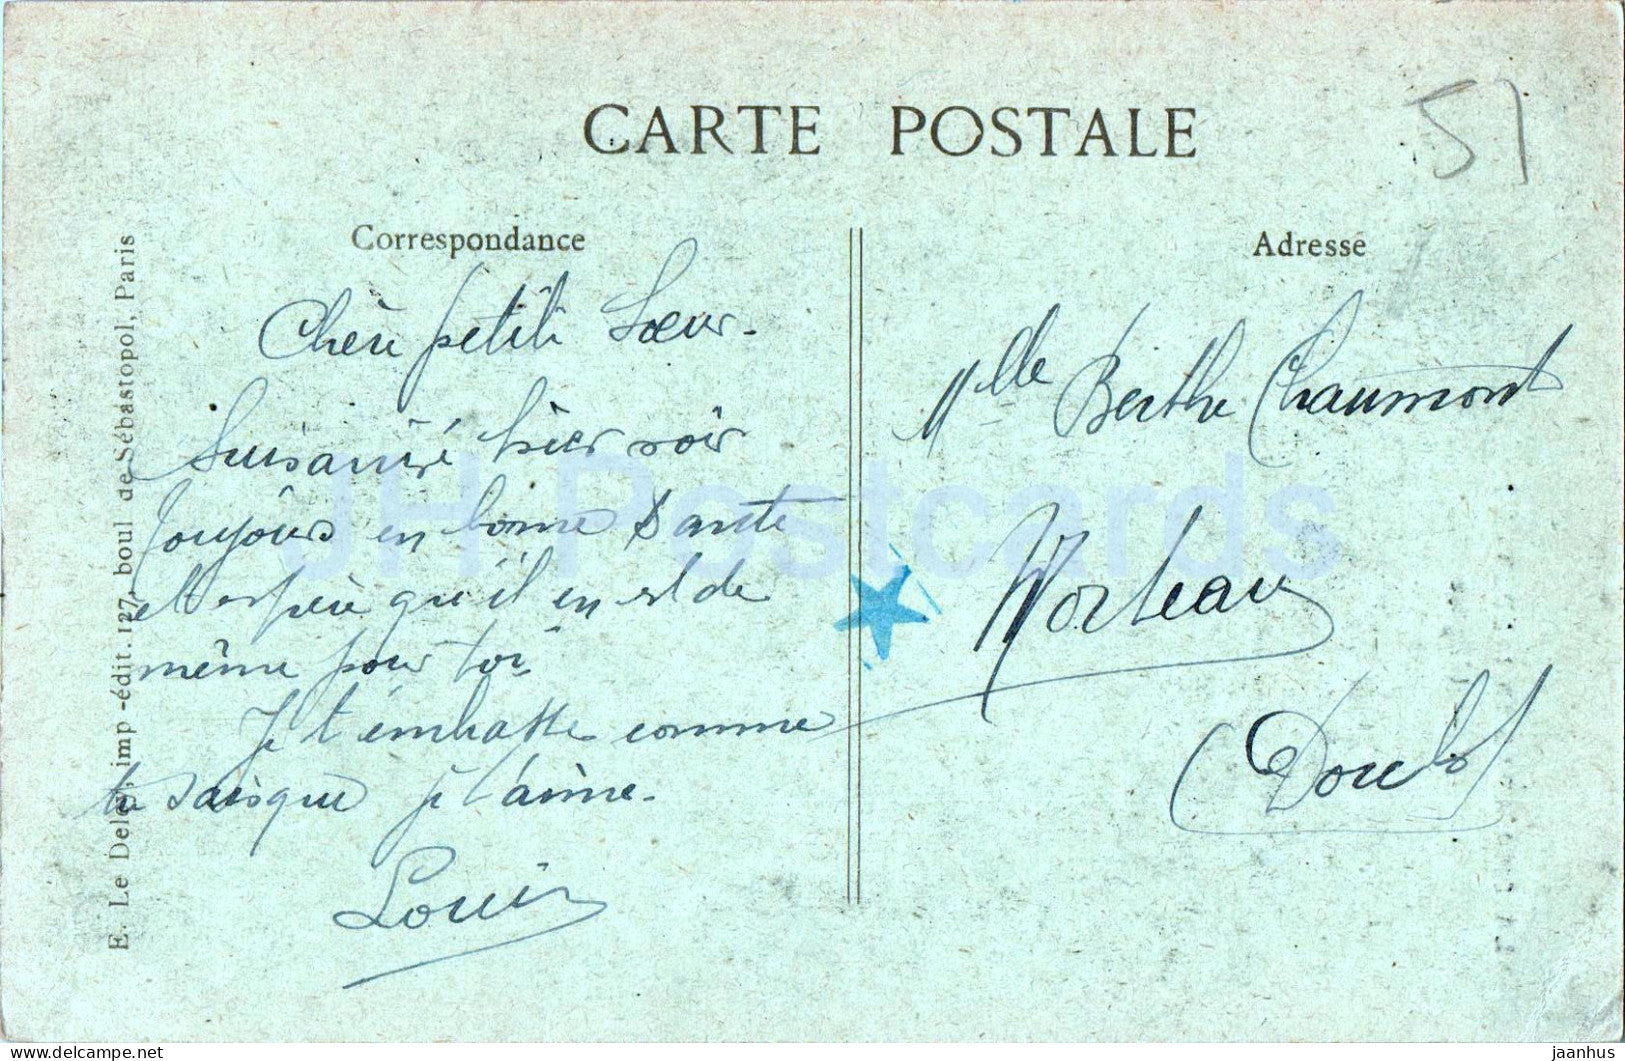 CARTE POSTALE
51
Correspondance
Adresse
Chère petite Sœur.
Suis arrivé hier soir
toujours en bonne Sante
et espère qu'il en est de
même pour toi
Je t'embrasse comme
tu sais que je t'aime.
Louis
Mlle Berthe Chaumont
Morteau
(Doubs)
E. Le Deley, imp -édit. 127, boul de Sébastopol, Paris
JH Postcards
jaanhus
DELCAMPE.net